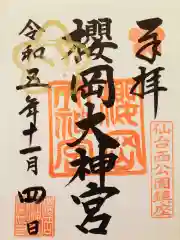 奉拝
仙台西公園鎮座
櫻岡大神宮
令和五年十一月四日